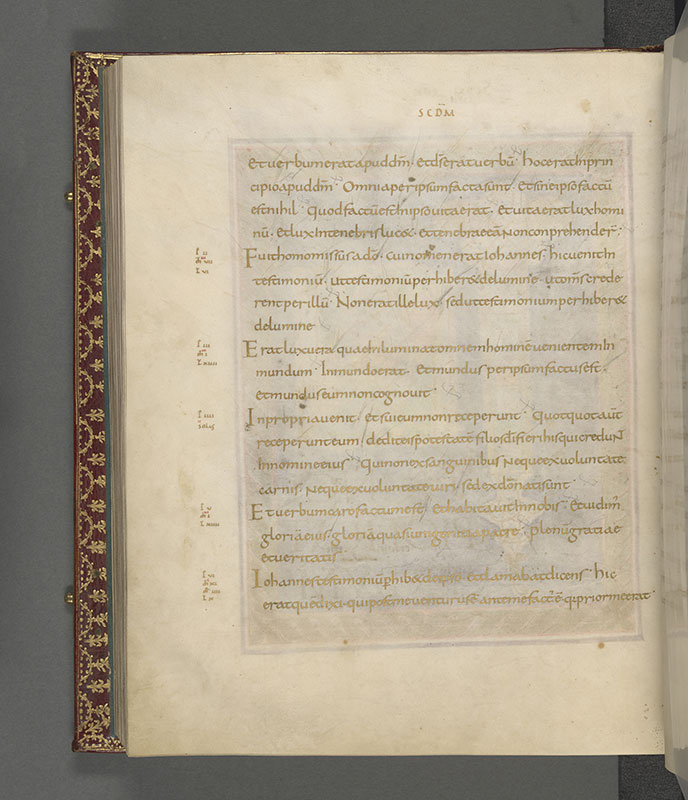 SCDM̄
Et uerbum erat apud dm̄ · et ds̄ erat uerbū · hoc erat In prin
cipio apud dm̄ · Omnia per ipsum facta sunt · Et sine ipso factū
est nihil · Quod factū est In ipso uita erat · Et uita erat lux homi
nū · Et lux In tenebris lucet · et tenebrae eā non conprehender̄ ·
Fuit homo missus a dō · cui nomen erat Iohannes · hic uenit In
testimoniū · ut testimoniū perhiberet de lumine · ut om̄s crede
rent per illū · Non erat ille lux · sed ut testimonium perhiberet
de lumine
Erat lux uera quae Inluminat omnem hominē uenientem In
mundum · In mundo erat · Et mundus per ipsum factus est ·
et mundus eum non cognouit ·
In propria uenit · Et sui eum non receperunt · Quotquot autē
receperunt eum · dedit eis potestatē filios dī fieri his qui creduN
In nomine eius · Qui non ex sanguinibus Neque ex uoluntate
carnis · Neque ex uoluntate uiri · sed ex dō nati sunt ·
Et uerbum caro factum est · Et habitauit In nobis · Et uidim'
gloriā eius · gloriā quasi unigeniti a patre · plenū gratiae
et ueritatis
Iohannes testimoniū phibet de ipso · Et clamabat dicens · hic
erat quē dixi · qui post me uenturus ē · ante me fact' ē · q̄ prior me erat